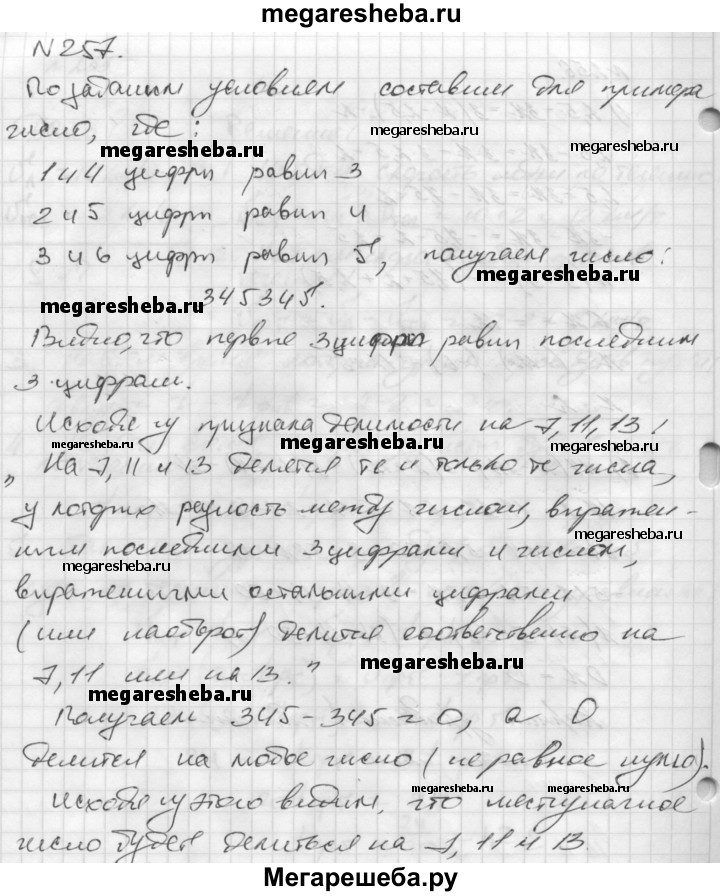 megaresheba.ru
N 257.
По заданым условиям составим для примера
число, где:
megaresheba.ru
megaresheba.ru
1 и 4 цифры равны 3
2 и 5 цифры равны 4
3 и 6 цифры равны 5, получаем число:
megaresheba.ru
megaresheba.ru
345345.
Видно, что первые 3 цифры равны последним
3 цифрам.
Исходя из признака делимости на 7, 11, 13:
megaresheba.ru
megaresheba.ru
megaresheba.ru
„На 7, 11 и 13 делятся те и только те числа,
у которых разность между числом, выражен-
megaresheba.ru
ным последними 3 цифрами и числом,
megaresheba.ru
выраженными остальными цифрами
(или наоборот) делится соответственно на
7, 11 или на 13."
megaresheba.ru
megaresheba.ru
Получаем 345-345=0, а 0
делится на любое число (не равное нулю).
megaresheba.ru
megaresheba.ru
Исходя из этого видим, что шестизначное
число будет делиться на 7, 11 и 13.
Мегарешеба.ру